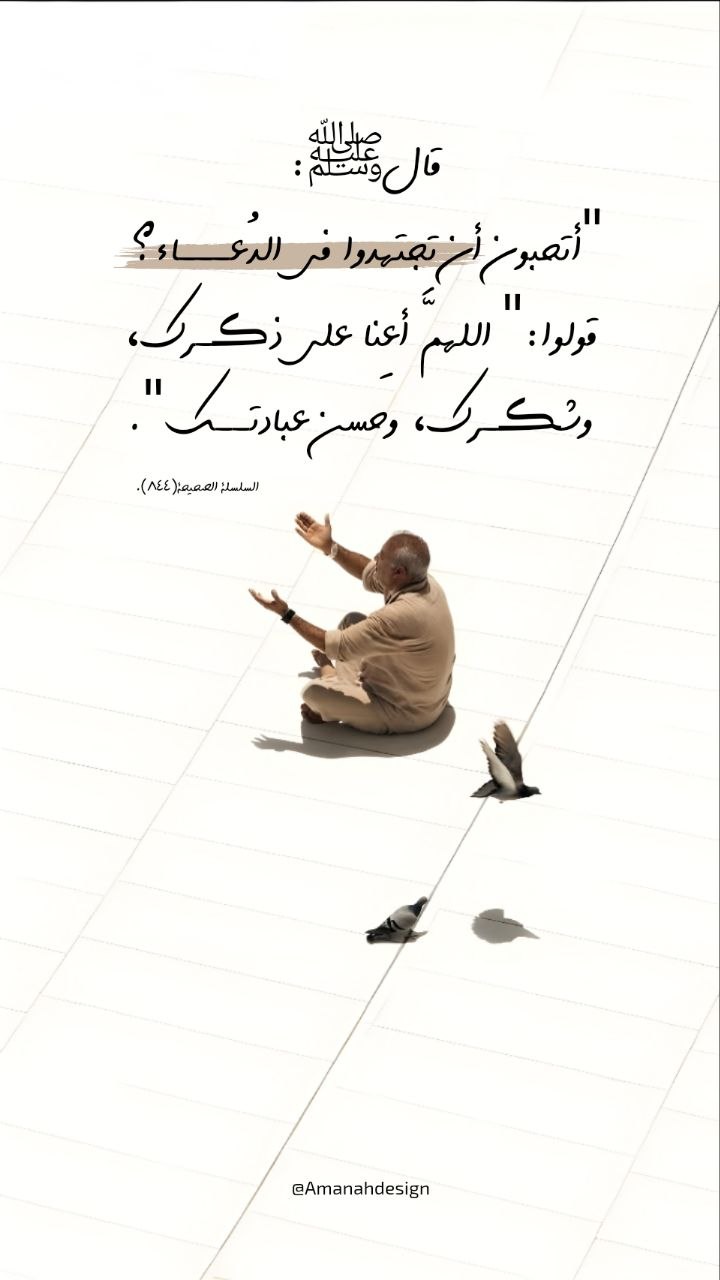 قال ﷺ :
"أتحبون أن تجتهدوا في الدُعـــاء؟
قولوا: " اللهمَّ أعِنا على ذكـرك،
وشكـرك، وحسن عبادتـك ".
السلسلة الصحيحة (٨٤٤).
@Amanahdesign